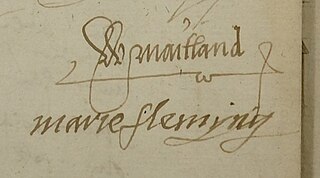 W maitland
marie flemyng